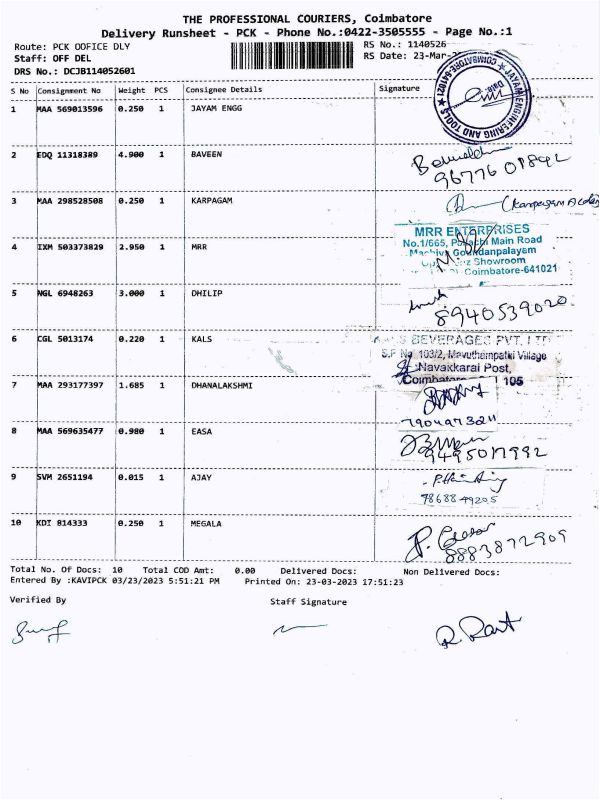 THE PROFESSIONAL COURIERS, Coimbatore
Delivery Runsheet - PCK - Phone No.:0422-3505555 - Page No.:1
Route: PCK OOFICE DLY
RS No.: 1140526
Staff: OFF DEL
RS Date: 23-Mar-
DRS No.: DCJB114052601
S No Consignment No Weight PCS Consignee Details Signature
1 MAA 569013596 0.250 1 JAYAM ENGG
JAYAM ENGINEERING AND TOOLS COIMBATORE-641021
Date:
2 EDQ 11318389 4.900 1 BAVEEN
3 MAA 298528508 0.250 1 KARPAGAM
4 IXM 503373829 2.950 1 MRR
MRR ENTERPRISES
No.1/665, Main Road
Showroom
Coimbatore-641021
5 NGL 6948263 3.000 1 DHILIP
8940539020
6 CGL 5013174 0.220 1 KALS
BEVERAGES PVT. LTD
S.F No. 103/2, Mavuthampathi Village
Navakkarai Post,
Coimbatore 105
7 MAA 293177397 1.685 1 DHANALAKSHMI
8 MAA 569635477 0.980 1 EASA
9 SVM 2651194 0.015 1 AJAY
7868849205
10 KDI 814333 0.250 1 MEGALA
8883872909
Total No. Of Docs: 10 Total COD Amt: 0.00 Delivered Docs: Non Delivered Docs:
Entered By :KAVIPCK 03/23/2023 5:51:21 PM Printed On: 23-03-2023 17:51:23
Verified By Staff Signature